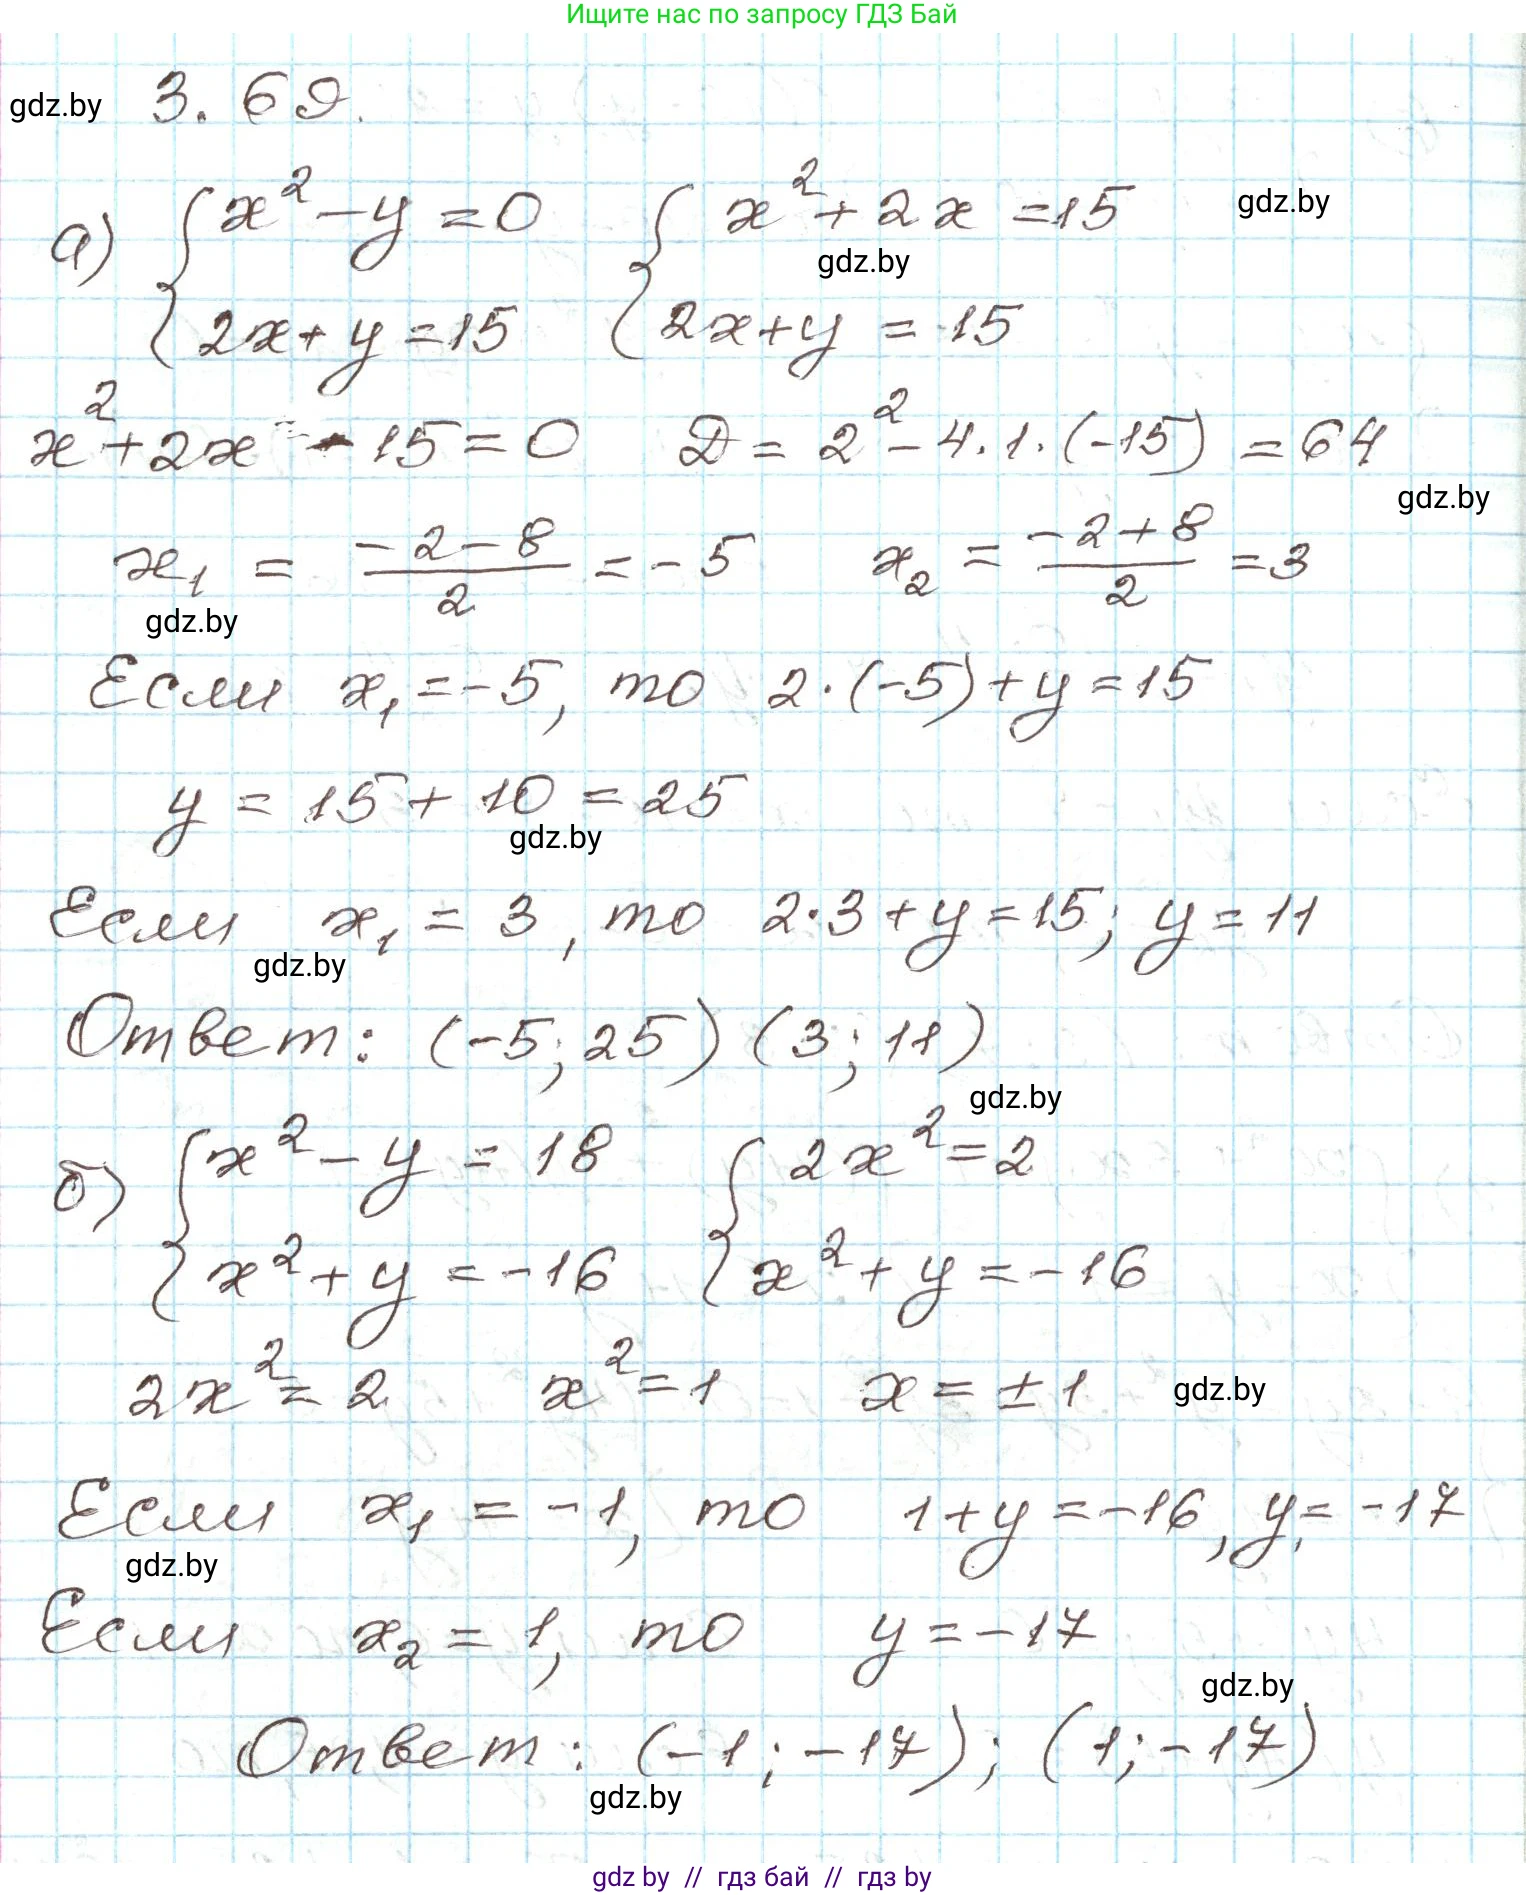 Ищите нас по запросу ГДЗ Бай
gdz.by 3.69.
а) { x² - y = 0 { x² + 2x = 15 gdz.by
gdz.by
2x + y = 15 2x + y = 15
x² + 2x - 15 = 0 D = 2² - 4·1·(-15) = 64
gdz.by
x₁ = (-2-8)/2 = -5 x₂ = (-2+8)/2 = 3
gdz.by
Если x₁ = -5, то 2·(-5)+y = 15
y = 15 + 10 = 25
gdz.by
Если x₁ = 3, то 2·3 + y = 15; y = 11
gdz.by
Ответ: (-5; 25) (3; 11)
gdz.by
б) { x² - y = 18 { 2x² = 2
x² + y = -16 x² + y = -16
2x² = 2 x² = 1 x = ±1 gdz.by
Если x₁ = -1, то 1 + y = -16, y = -17
gdz.by
Если x₂ = 1, то y = -17
gdz.by
Ответ: (-1; -17); (1; -17)
gdz.by
gdz by // гдз бай // гдз by